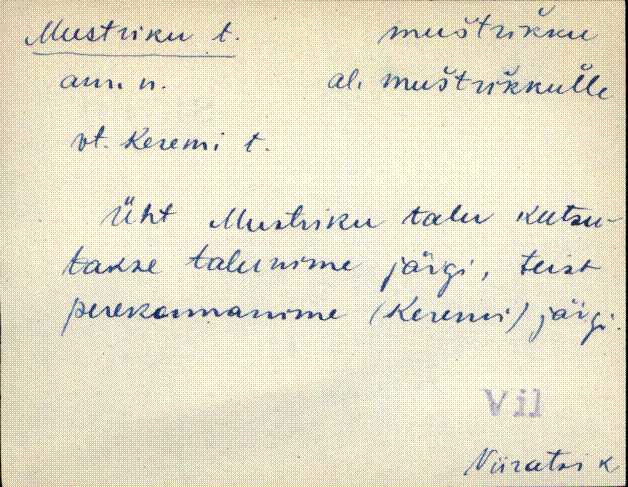 Mustriku t. muštrikku
amn. n. al. muštrikkulle
vt. Keremi t.
Üht Mustriku talu kutsu-
takse talunime järgi, teist
perekonnanime (Keremi) järgi.
Vil
Viiratsi k